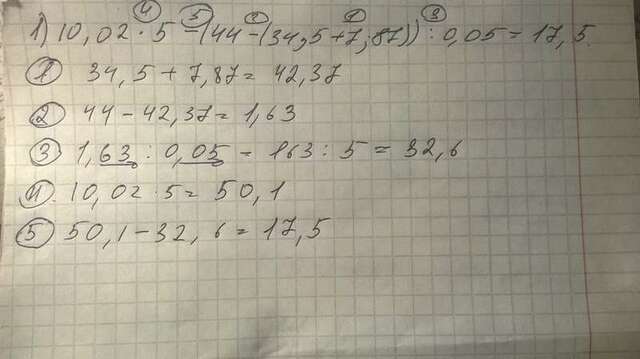 ④ ⑤ ② ① ③
1) 10,02 · 5 - (44 - (34,5 + 7,87)) : 0,05 = 17,5.
① 34,5 + 7,87 = 42,37
② 44 - 42,37 = 1,63
③ 1,63 : 0,05 = 163 : 5 = 32,6
④ 10,02 · 5 = 50,1
⑤ 50,1 - 32,6 = 17,5